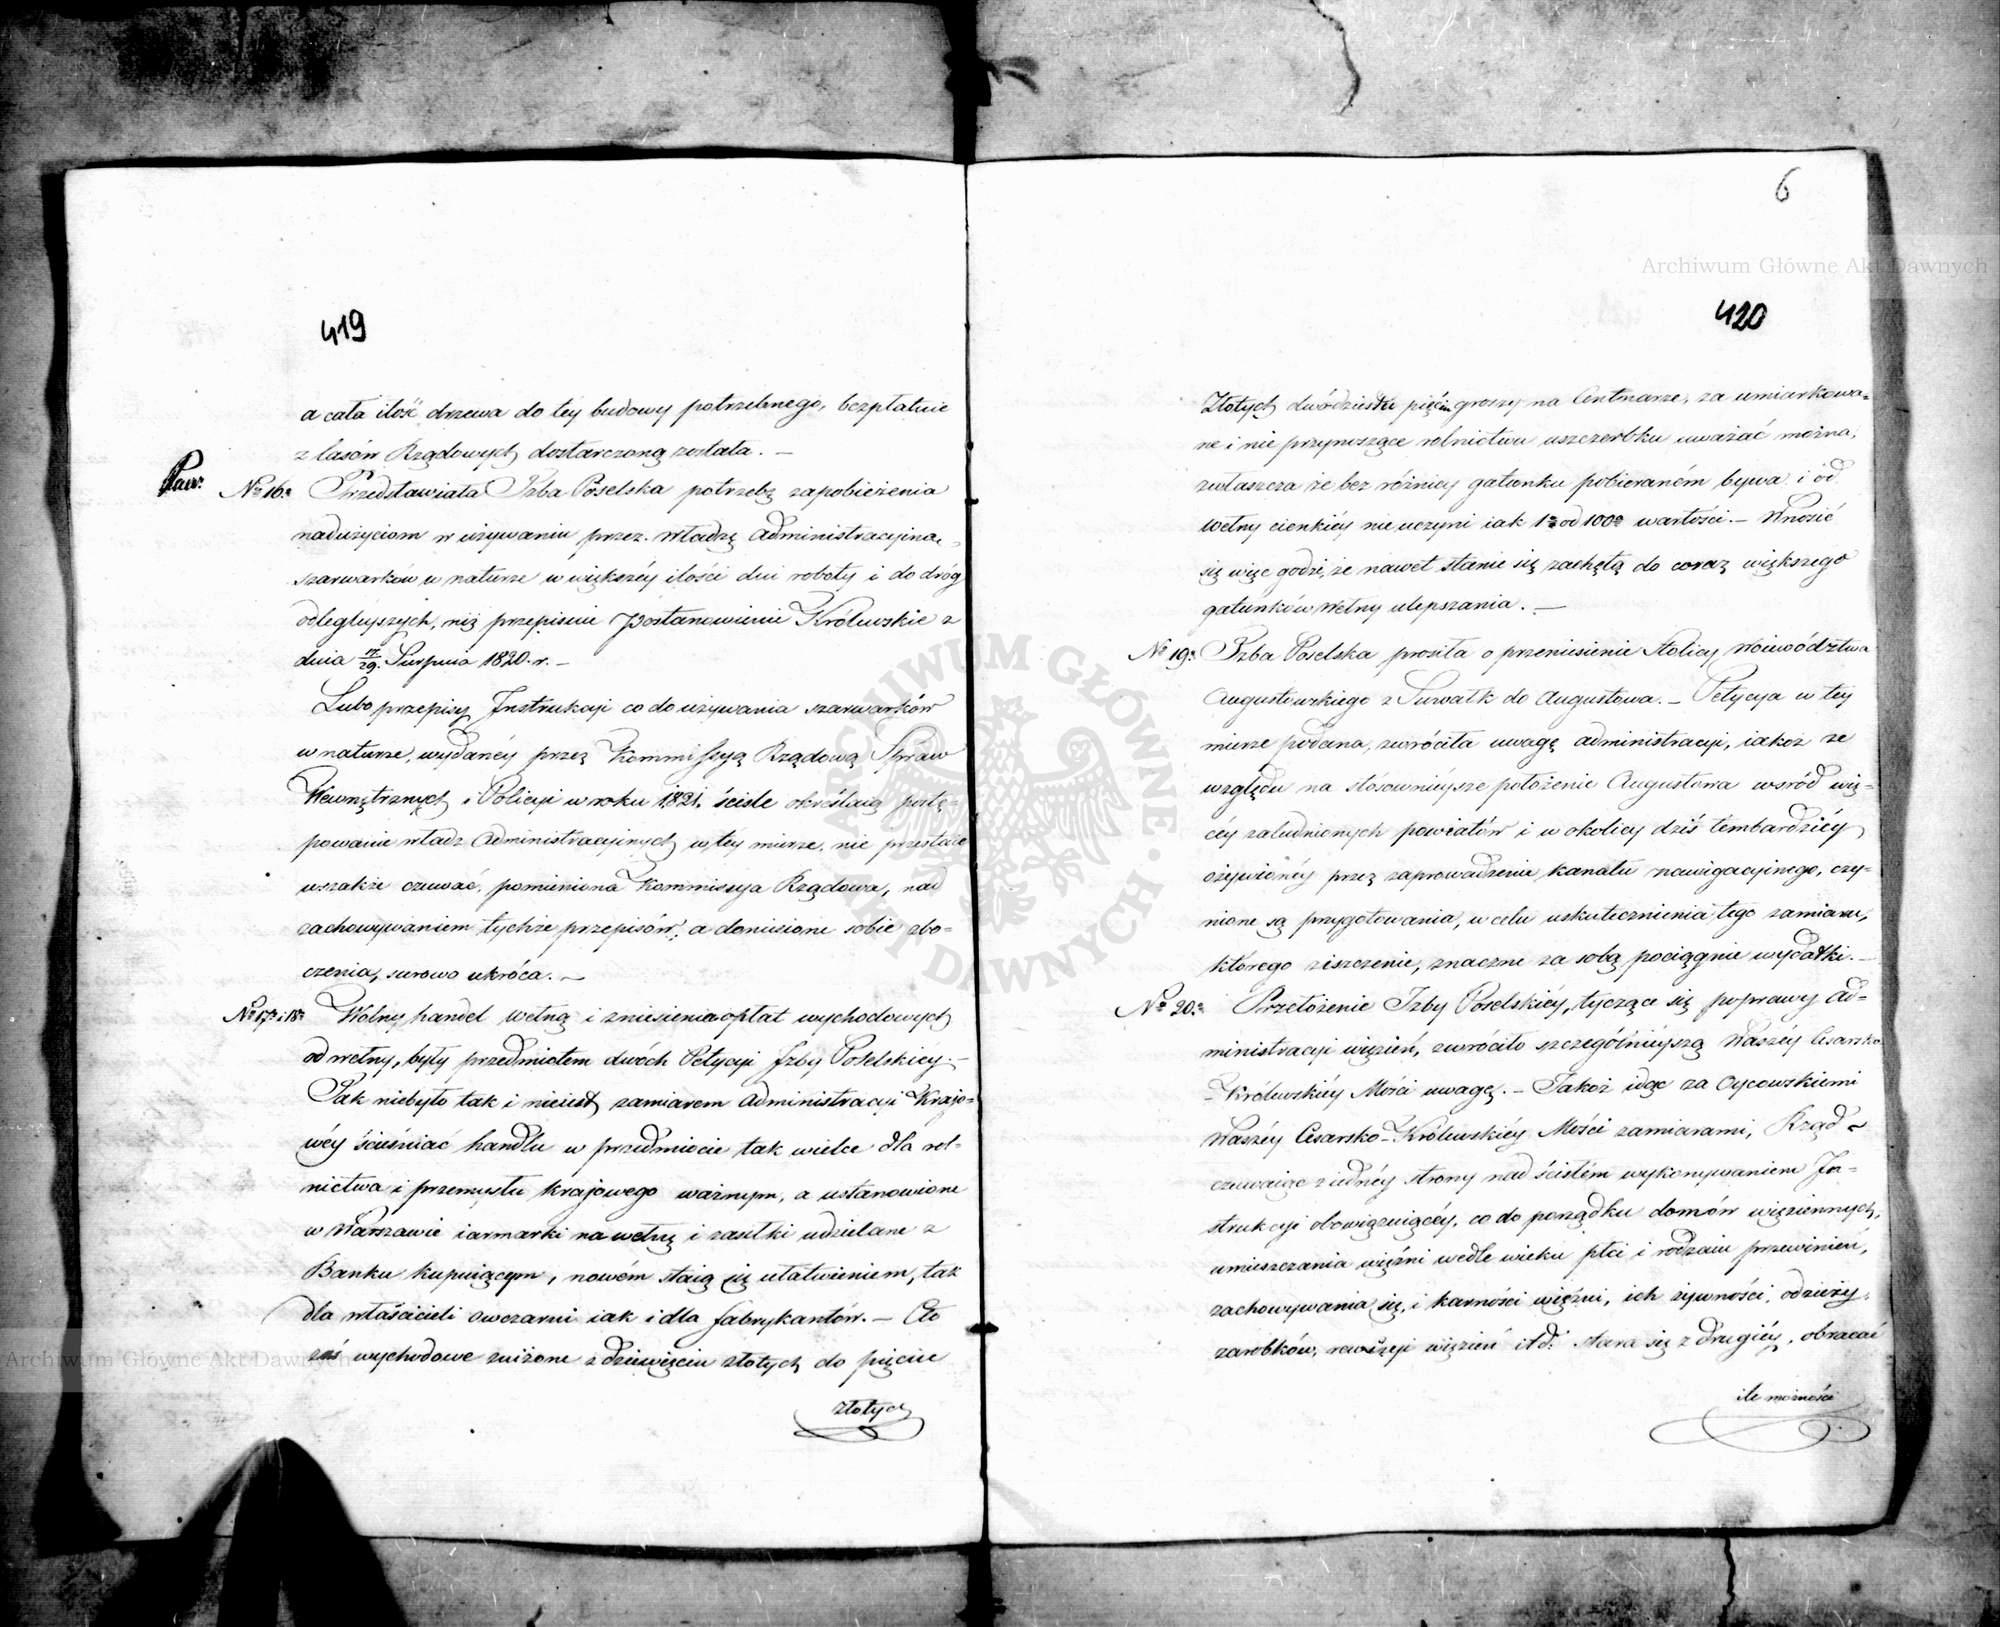 419
a cała ilość drzewa do tey budowy potrzebnego, bezpłatnie
z lasów Rządowych dostarczoną została. —
Nº 16º Przedstawiała Izba Poselska potrzebę zapobieżenia
nadużyciom w używaniu przez Władzę Administracyjną,
szarwarków w naturze w większéy ilości dni roboty i do dróg
odległyszych, niż przepisuie Postanowienie Królewskie z
dnia 17/29. Sierpnia 1820. r. —
Lubo przepisy Instrukcji co do używania szarwarków
w naturze, wydanéy przez Kommissyą Rządową Spraw
Wewnętrznych i Policyi w roku 1821. ściśle określaią postę-
powanie władz Administracyjnych w tey mierze, nie przestaie
wszakże czuwać, pomieniona Kommissya Rządowa, nad
zachowywaniem tychże przepisów, a doniesione sobie zbo-
czenia, surowo ukróca. —
Nº 17º i 18º Wolny handel wełną i zniesienia opłat wychodowych
od wełny, były przedmiotem dwóch Petycyi Izby Poselskiey. —
Jak niebyło tak i nieiest zamiarem Administracyi Krajo-
wéy ścieśniać handlu w przedmiocie tak wielce dla rol-
nictwa i przemysłu krajowego ważnym, a ustanowione
w Warszawie iarmarki na wełnę i zasiłki udzielane z
Banku kupuiącym, nowém staią się ułatwieniem, tak
dla właścicieli owczarni iak i dla fabrykantów. — Cło
zaś wychodowe zniżone z dziewięciu złotych do pięciu
złotych
6
420
Złotych dwódziestu pięciu groszy na Centnarze, za umiarkowa-
ne i nie przynoszące rolnictwu uszczerbku uważać można,
zwłaszcza że bez różnicy gatunku pobieraném bywa i od
wełny cienkiéy nie uczyni iak 1º od 100º wartości. — Wnosić
się więc godzi, że nawet stanie się zachętą do coraz większego
gatunków wełny ulepszania. —
Nº 19º Izba Poselska prosiła o przeniesienie Stolicy Woiewództwa
Augustowskiego z Suwałk do Augustowa. — Petycya w tey
mierze podana, zwróciła uwagę administracyi, iakoż ze
względu na stosownieysze położenie Augustowa wsród wię-
céy zaludnionych powiatów i w okolicy dziś tembardziéy
ożywionéy przez zaprowadzenie kanału nawigacyjnego, czy-
nione są przygotowania, w celu uskutecznienia tego zamiaru,
którego ziszczenie, znaczne za sobą pociągnie wydatki. —
Nº 20º Przełożenie Izby Poselskiéy, tyczące się poprawy Ad-
ministracyi więzień, zwróciło szczególnieyszą Waszéy Cesarsko
-Królewskiéy Mości uwagę. — Jakoż idąc za Oycowskiemi
Waszéy Cesarsko-Królewskiéy Mości zamiarami, Rząd
czuwaiąc z iednéy strony nad ścisłém wykonywaniem In-
strukcyi obowiązuiącéy, co do porządku domów więziennych,
umieszczania więźni wedle wieku płci i rodzaiu przewinień,
zachowywania się, i karności więźni, ich żywności, odzieży,
zarobków, rewizyi więzień itd. stara się z drugiéy, obracać
ile możności